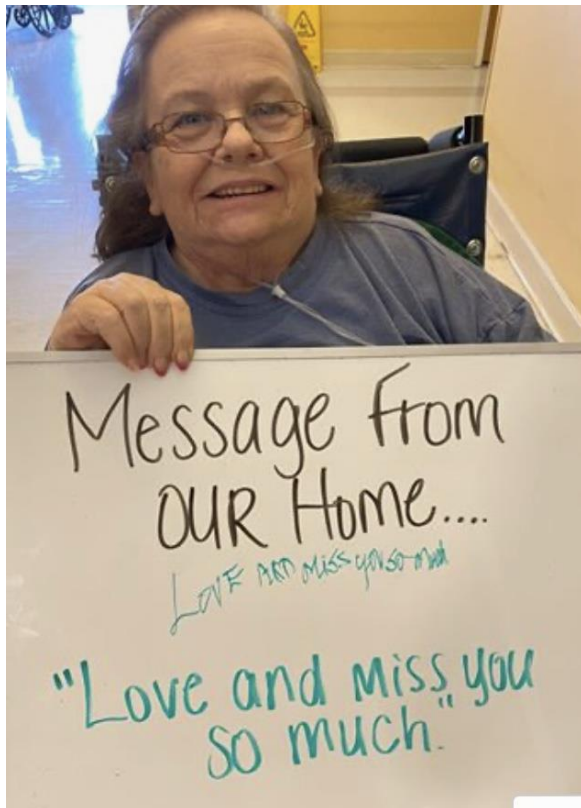 Message From
OUR Home....
LOVE AND MISS you so much
"Love and Miss you
so much"